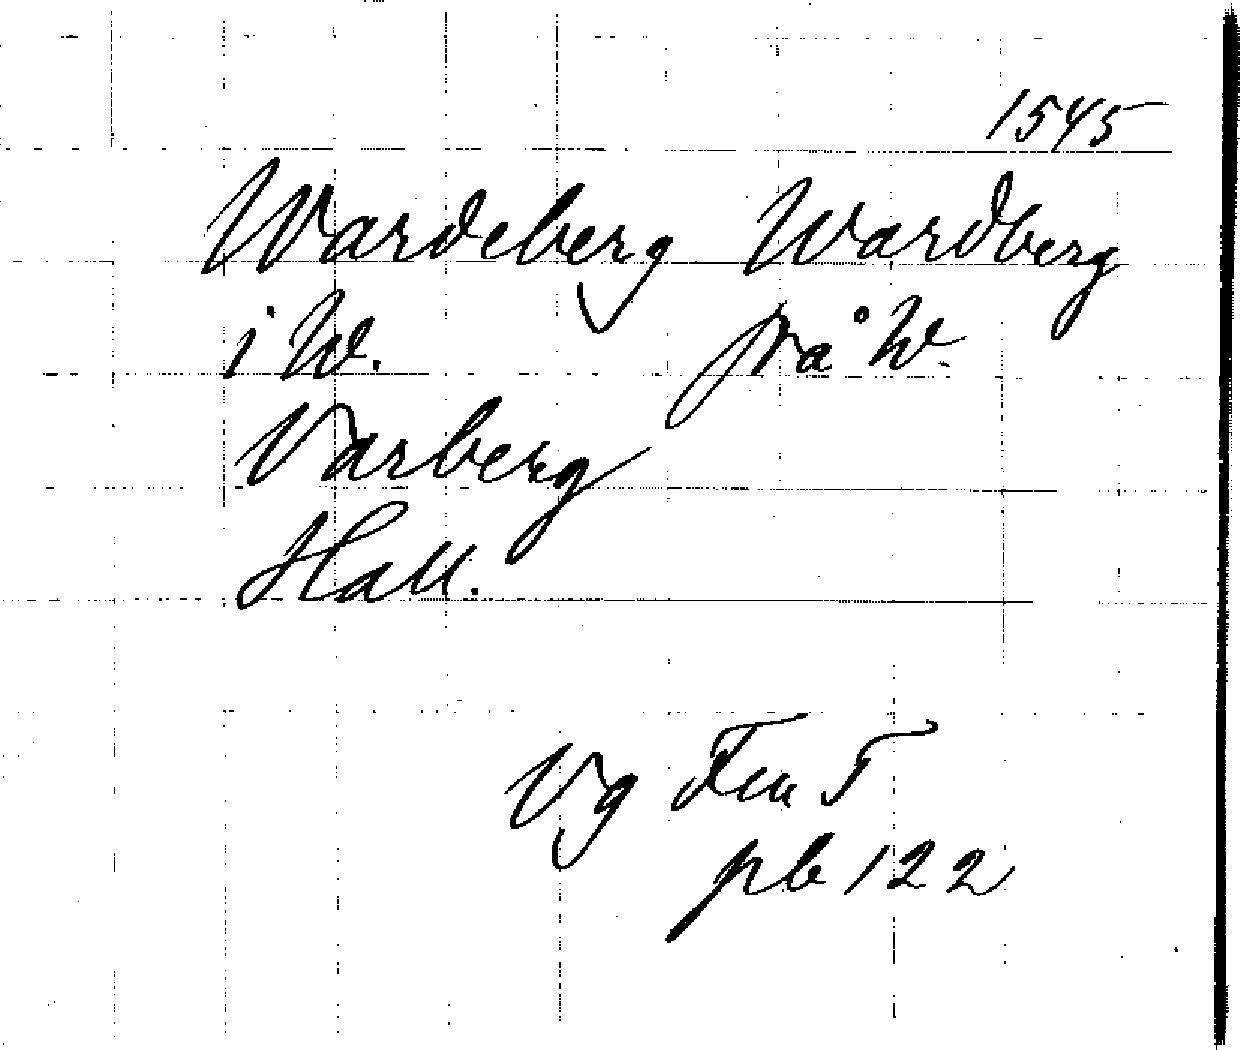 1545
Wardeberg Wardberg
i W. frå W.
Varberg
Hall.
Vg
pb 122